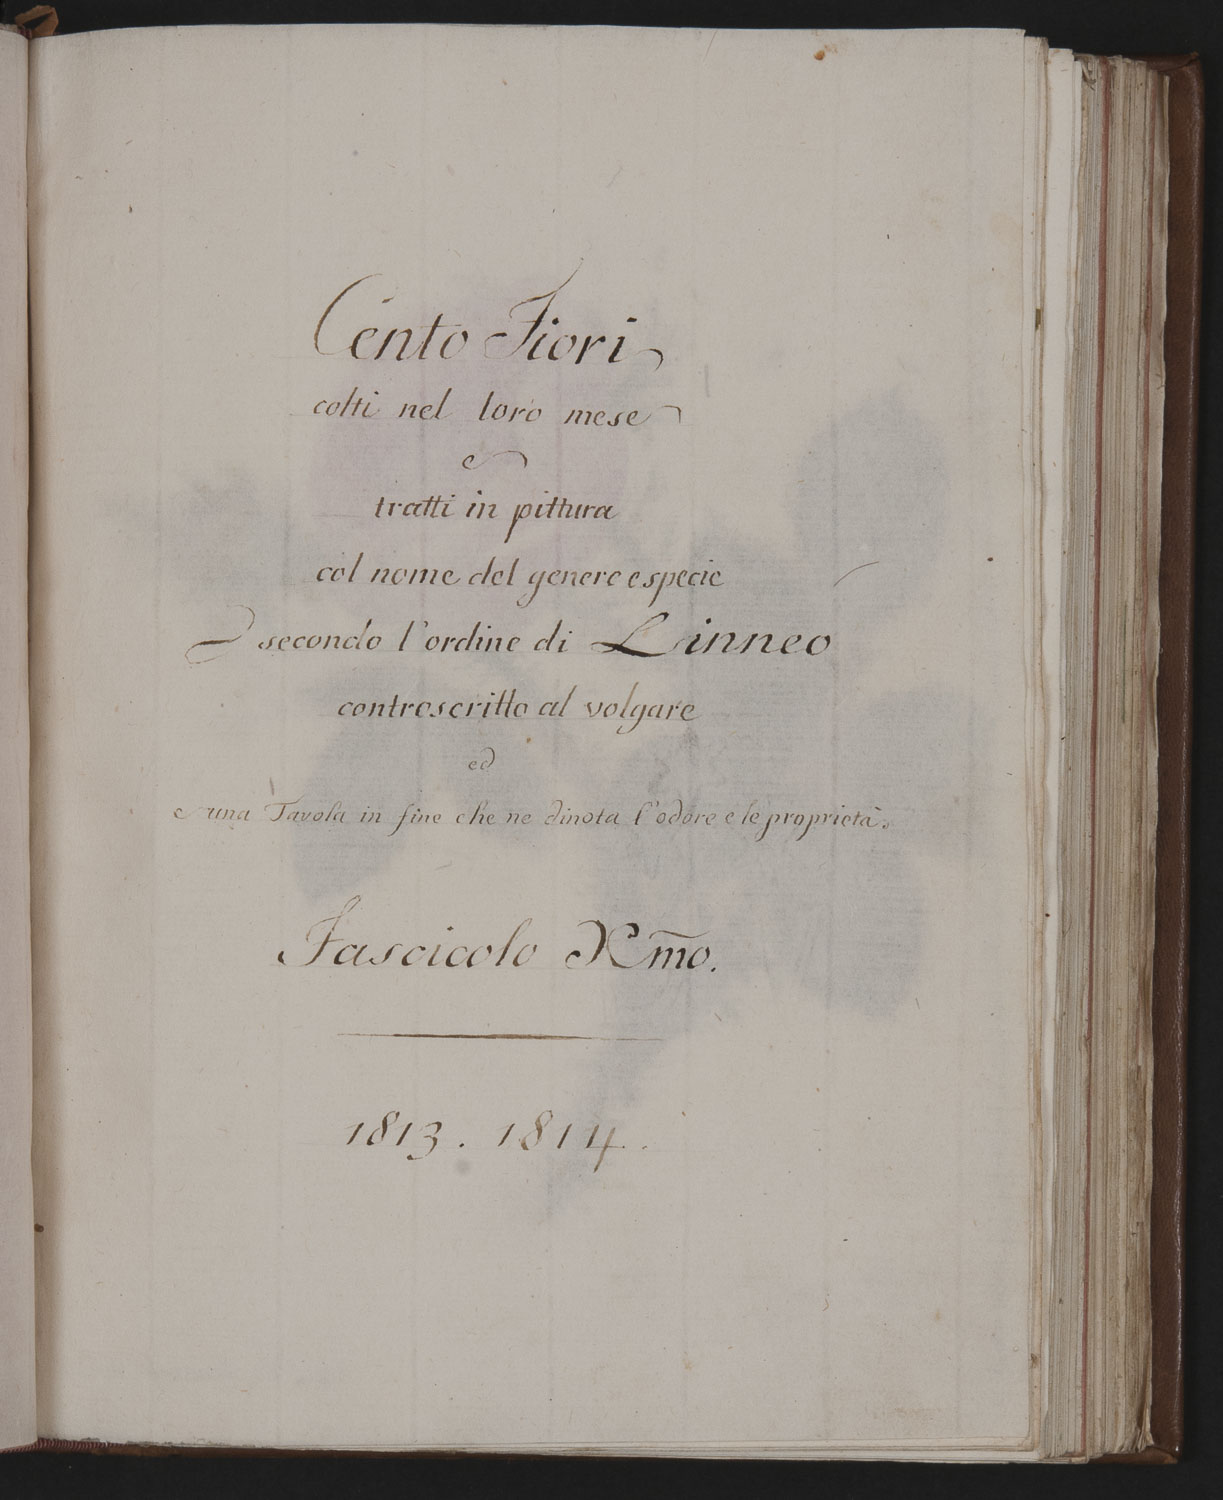 Cento Fiori
colti nel loro mese
e
tratti in pittura
col nome del genere e specie
secondo l'ordine di Linneo
controscritto al volgare
ed
una Tavola in fine che ne dinota l'odore e le proprietà.
Fascicolo Xm̄o.
1813. 1814.